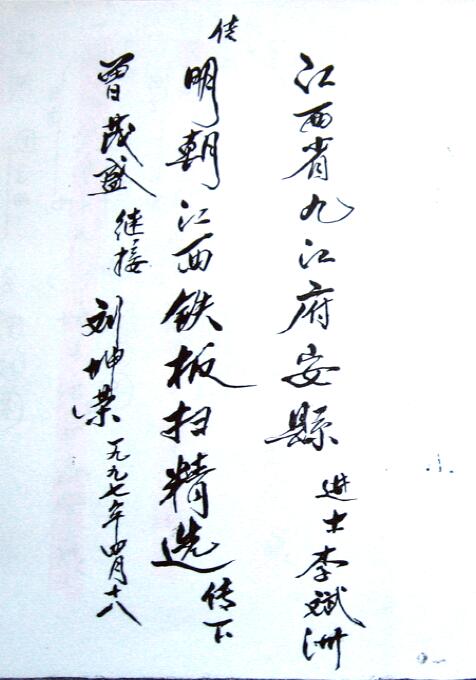 江西省九江府安縣進士李斌洲
传
明朝江西铁板扫精选传下
曾茂盛继接刘坤荣一九九七年四月十八